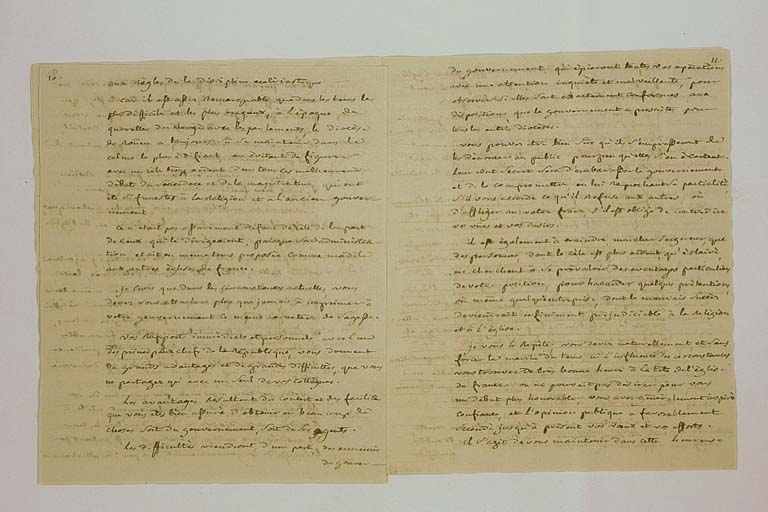 10.
aux Règles de la discipline ecclésiastique
car il est assez Remarquable que dans les tems les
plus difficiles et les plus orageux, a l'époque des
querelles du clergé avec les parlements, le diocèse
de Rouen a toujours se maintenir dans le
calme le plus édifiant, en évitant de figurer
avec un éclat trop ardent dans tous ces malheureux
débats du sacerdoce et de la magistrature qui ont
été si funestes a la religion et a l'ancien gouver-
nement.
Ce n'était pas assurément défaut de zèle de la part
de ceux qui le dirigeaient, puisque son administra-
tion etait en meme tems proposée comme modèle
aux autres églises de France.
Je crois que dans les circonstances actuelles, vous
devez vous attacher plus que jamais à imprimer à
votre gouvernement ce meme caractère de sagesse.
vos Rapports immédiats et personnels avec l'un
des principaux chefs de la République, vous donnent
de grands avantages et de grandes difficultés, que vous
ne partagez qu'avec un seul de vos collègues.
Les avantages Résultent du crédit et des facilités
que vous etes bien assuré d'obtenir en beaucoup de
choses soit du gouvernement, soit de ses agents.
Les difficultés viendront d'une part, des ennemis
du gouver-
11.
du gouvernement, qui épieront toutes vos opérations
avec une attention inquiète et malveillante, pour
observer si elles sont exactement conformes aux
dispositions que le gouvernement a prescrites pour
tous les autres diocèses.
vous pouvez etre bien sur qu'ils s'empresseront de
les dénoncer au public pour peu qu'elles s'en écartent.
leur but secret sera d'embarrasser le gouvernement
et de le compromettre en lui Reprochant sa partialité
s'il vous accorde ce qu'il Refuse aux autres ou
d'affliger votre s'il est obligé de contredire
vos vues et vos désirs.
il est également à craindre que
des personnes dont le zèle est plus ardent qu'éclairé,
ne cherchent à se prévaloir des avantages particuliers
de votre position, pour hazarder quelques prétentions
ou même quelque entreprise dont le mauvais succès
deviendrait infiniment préjudiciable à la Religion
et à l'église.
je vous le Repète, vous devez naturellement et sans
forcer la marche du tems ni l'influence des circonstances,
vous trouver de très bonne heure à la tête de l'église
de France: on ne pouvait pas désirer pour vous
un début plus honorable; vous avez inspiré
confiance, et l'opinion publique a favorablement
secondé jusqu'à présent vos vœux et vos efforts.
il s'agit de vous maintenir dans cette heureuse